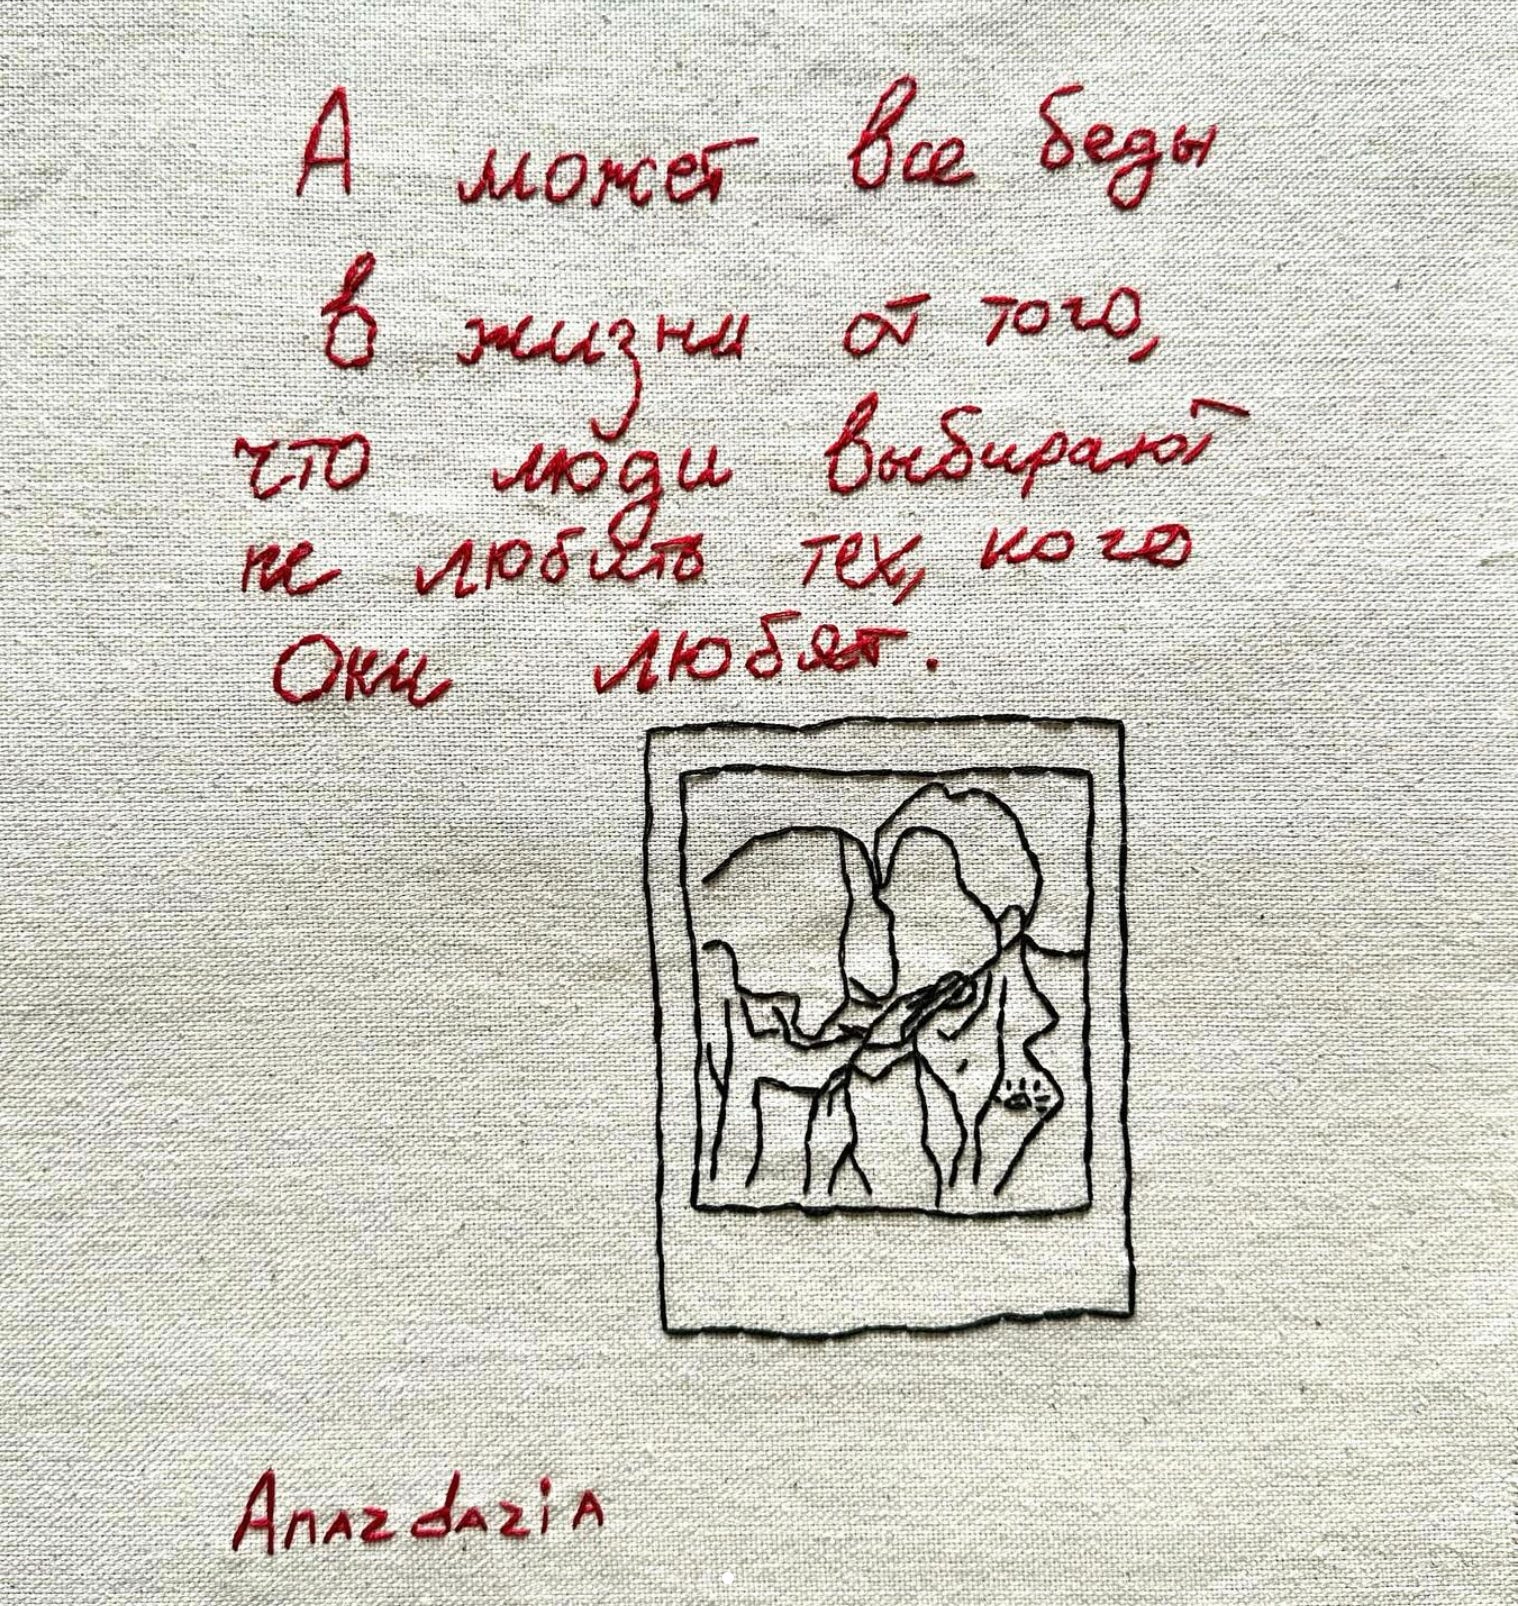 А может все беды
в жизни от того,
что люди выбирают
не любить тех, кого
Они любят.
Anazdazia